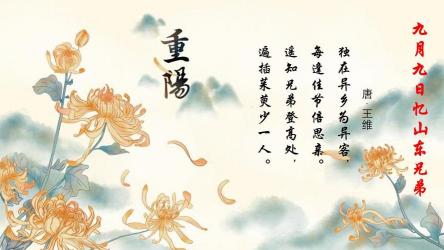 九月九日忆山东兄弟
唐·王维
独在异乡为异客，
每逢佳节倍思亲。
遥知兄弟登高处，
遍插茱萸少一人。
重陽